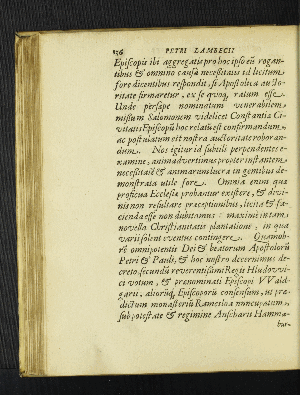 136 PETRI LAMBECII
Episcopis ibi aggregatis pro hoc ipso eū rogan-
tibus & omnino causâ necessitatis id licitum
fore dicentibus respondit, si Apostolica aucto-
ritate firmaretur, ex se quoq́ ratum esse.
Unde persæpe nominatum venerabilem
missum Salomonem videlicet Constantiæ Ci-
vitatis Episcopū hoc relatū est confirmandum,
ac postulatum est nostra auctoritate roboran-
dum. Nos igitur id subtili perpendentes e-
xamine, animadvertimus propter instantem
necessitatē & animarum lucra in gentibus de-
monstrata utile fore. Omnia enim quæ
proficua Ecclesiæ probantur existere, & divi-
nis non resultare præceptionibus, licita & fa-
cienda esse non dubitamus: maximè in tam
novella Christianitatis plantatione, in qua
varii solent eventus contingere. Quamob-
rē omnipotentis Dei & beatorum Apostolorū
Petri & Pauli, & hoc nostro decernimus de-
creto, secundū reverentissimi Regis Hludowi-
ci votum, & prænominati Episcopi VValdi-
garii, aliorūq́ Episcoporū consensum, ut præ-
dictum monasteriū Ramesloa nuncupatum,
sub potestate & regimine Anscharii Hamma-
bur-